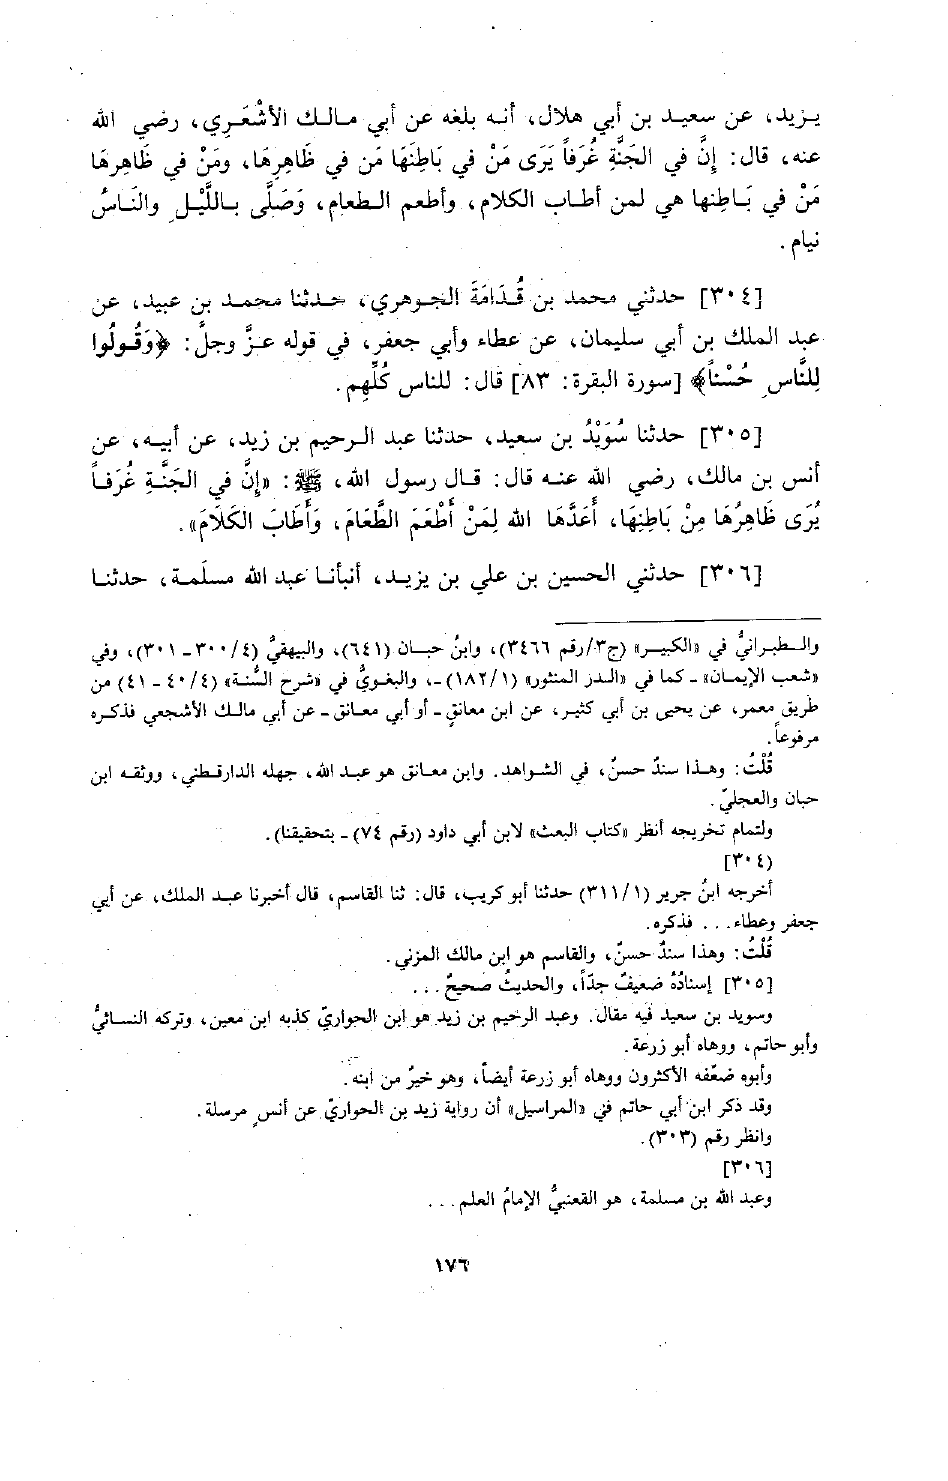 يزيد، عن سعيد بن أبي هلال، أنه بلغه عن أبي مالك الأشْعَرِي، رضي الله
عنه، قال: إنَّ في الجَنَّةِ غُرَفاً يَرَى مَنْ في بَاطِنَهَا مَن في ظَاهِرِهَا، ومَنْ في ظَاهِرِهَا
مَنْ في بَاطِنِها هي لمن أطاب الكلام، وأطعم الطعام، وَصَلَّى باللَّيْلِ والنَاسُ
نيام.
[٣٠٤] حدثني محمد بن قُدَامَةَ الجوهري، حدثنا محمد بن عبيد، عن
عبد الملك بن أبي سليمان، عن عطاء وأبي جعفر، في قوله عزَّ وجلَّ: ﴿وَقُولُوا
لِلنَّاسِ حُسْناً﴾ [سورة البقرة: ٨٣] قال: للناس كُلِّهِم.
[٣٠٥] حدثنا سُوَيْدُ بن سعيد، حدثنا عبد الرحيم بن زيد، عن أبيه، عن
أنس بن مالك، رضي الله عنه قال: قال رسول الله، ﷺ: «إنَّ في الجَنَّةِ غُرَفاً
يُرَى ظَاهِرُهَا مِنْ بَاطِنِهَا، أَعَدَّهَا الله لِمَنْ أَطْعَمَ الطَّعَامَ، وَأَطَابَ الكَلَامَ».
[٣٠٦] حدثني الحسين بن علي بن يزيد، أنبأنا عبد الله مسلَمة، حدثنا
والطبرانيُّ في «الكبير» (ج٣/رقم ٣٤٦٦)، وابنُ حبان (٦٤١)، والبيهقيُّ (٣٠٠/٤ـ ٣٠١)، وفي
«شعب الإيمان» ـ كما في «الدر المنثور» (١٨٢/١) ـ، والبغويُّ في «شرح السُّنة» (٤٠/٤ ـ ٤١) من
طريق معمر، عن يحيى بن أبي كثير، عن ابن معانقٍ ـ أو أبي معانق ـ عن أبي مالك الأشجعي فذكره
مرفوعاً.
قُلْتُ: وهذا سندٌ حسنٌ، في الشواهد. وابن معانق هو عبد الله، جهله الدارقطني، ووثقه ابن
حبان والعجليّ.
ولتمام تخريجه أنظر «كتاب البعث» لابن أبي داود (رقم ٧٤) ـ بتحقيقنا).
(٣٠٤]
أخرجه ابنُ جرير (٣١١/١) حدثنا أبو كريب، قال: ثنا القاسم، قال أخبرنا عبد الملك، عن أبي
جعفر وعطاء... فذكره.
قُلْتُ: وهذا سندٌ حسنٌ، والقاسم هو ابن مالك المزني.
[٣٠٥] إسنادُهُ ضعيفٌ جدّاً، والحديثُ صحيحٌ...
وسويد بن سعيد فيه مقال. وعبد الرحيم بن زيد هو ابن الحواريّ كذبه ابن معين، وتركه النسائيُّ
وأبو حاتم، ووهاه أبو زرعة.
وأبوه ضعّفه الأكثرون ووهاه أبو زرعة أيضاً، وهو خيرٌ من ابنه.
وقد ذكر ابن أبي حاتم في «المراسيل» أن رواية زيد بن الحواريّ عن أنسٍ مرسلة.
وانظر رقم (٣٠٣).
[٣٠٦]
وعبد الله بن مسلمة، هو القعنبيُّ الإمامُ العلم...
١٧٦